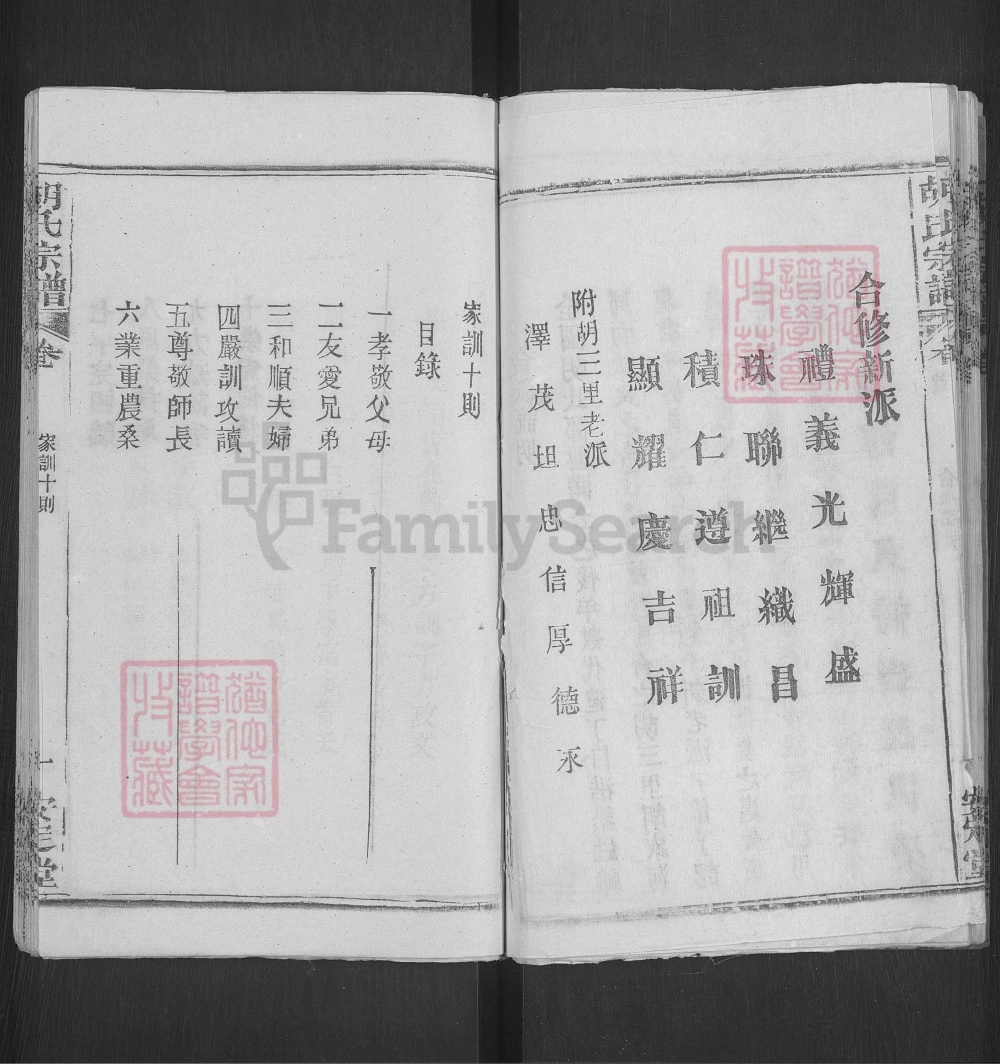 胡氏宗譜
合修新派
禮義光輝盛
珠聯繼織昌
積仁遵祖訓
顯耀慶吉祥
附胡三里老派
澤茂坦忠信厚德永
家訓十則
目錄
一孝敬父母
二友愛兄弟
三和順夫婦
四嚴訓攻讀
五尊敬師長
六業重農桑
胡氏宗譜
卷
家訓十則
一
安定堂
FamilySearch